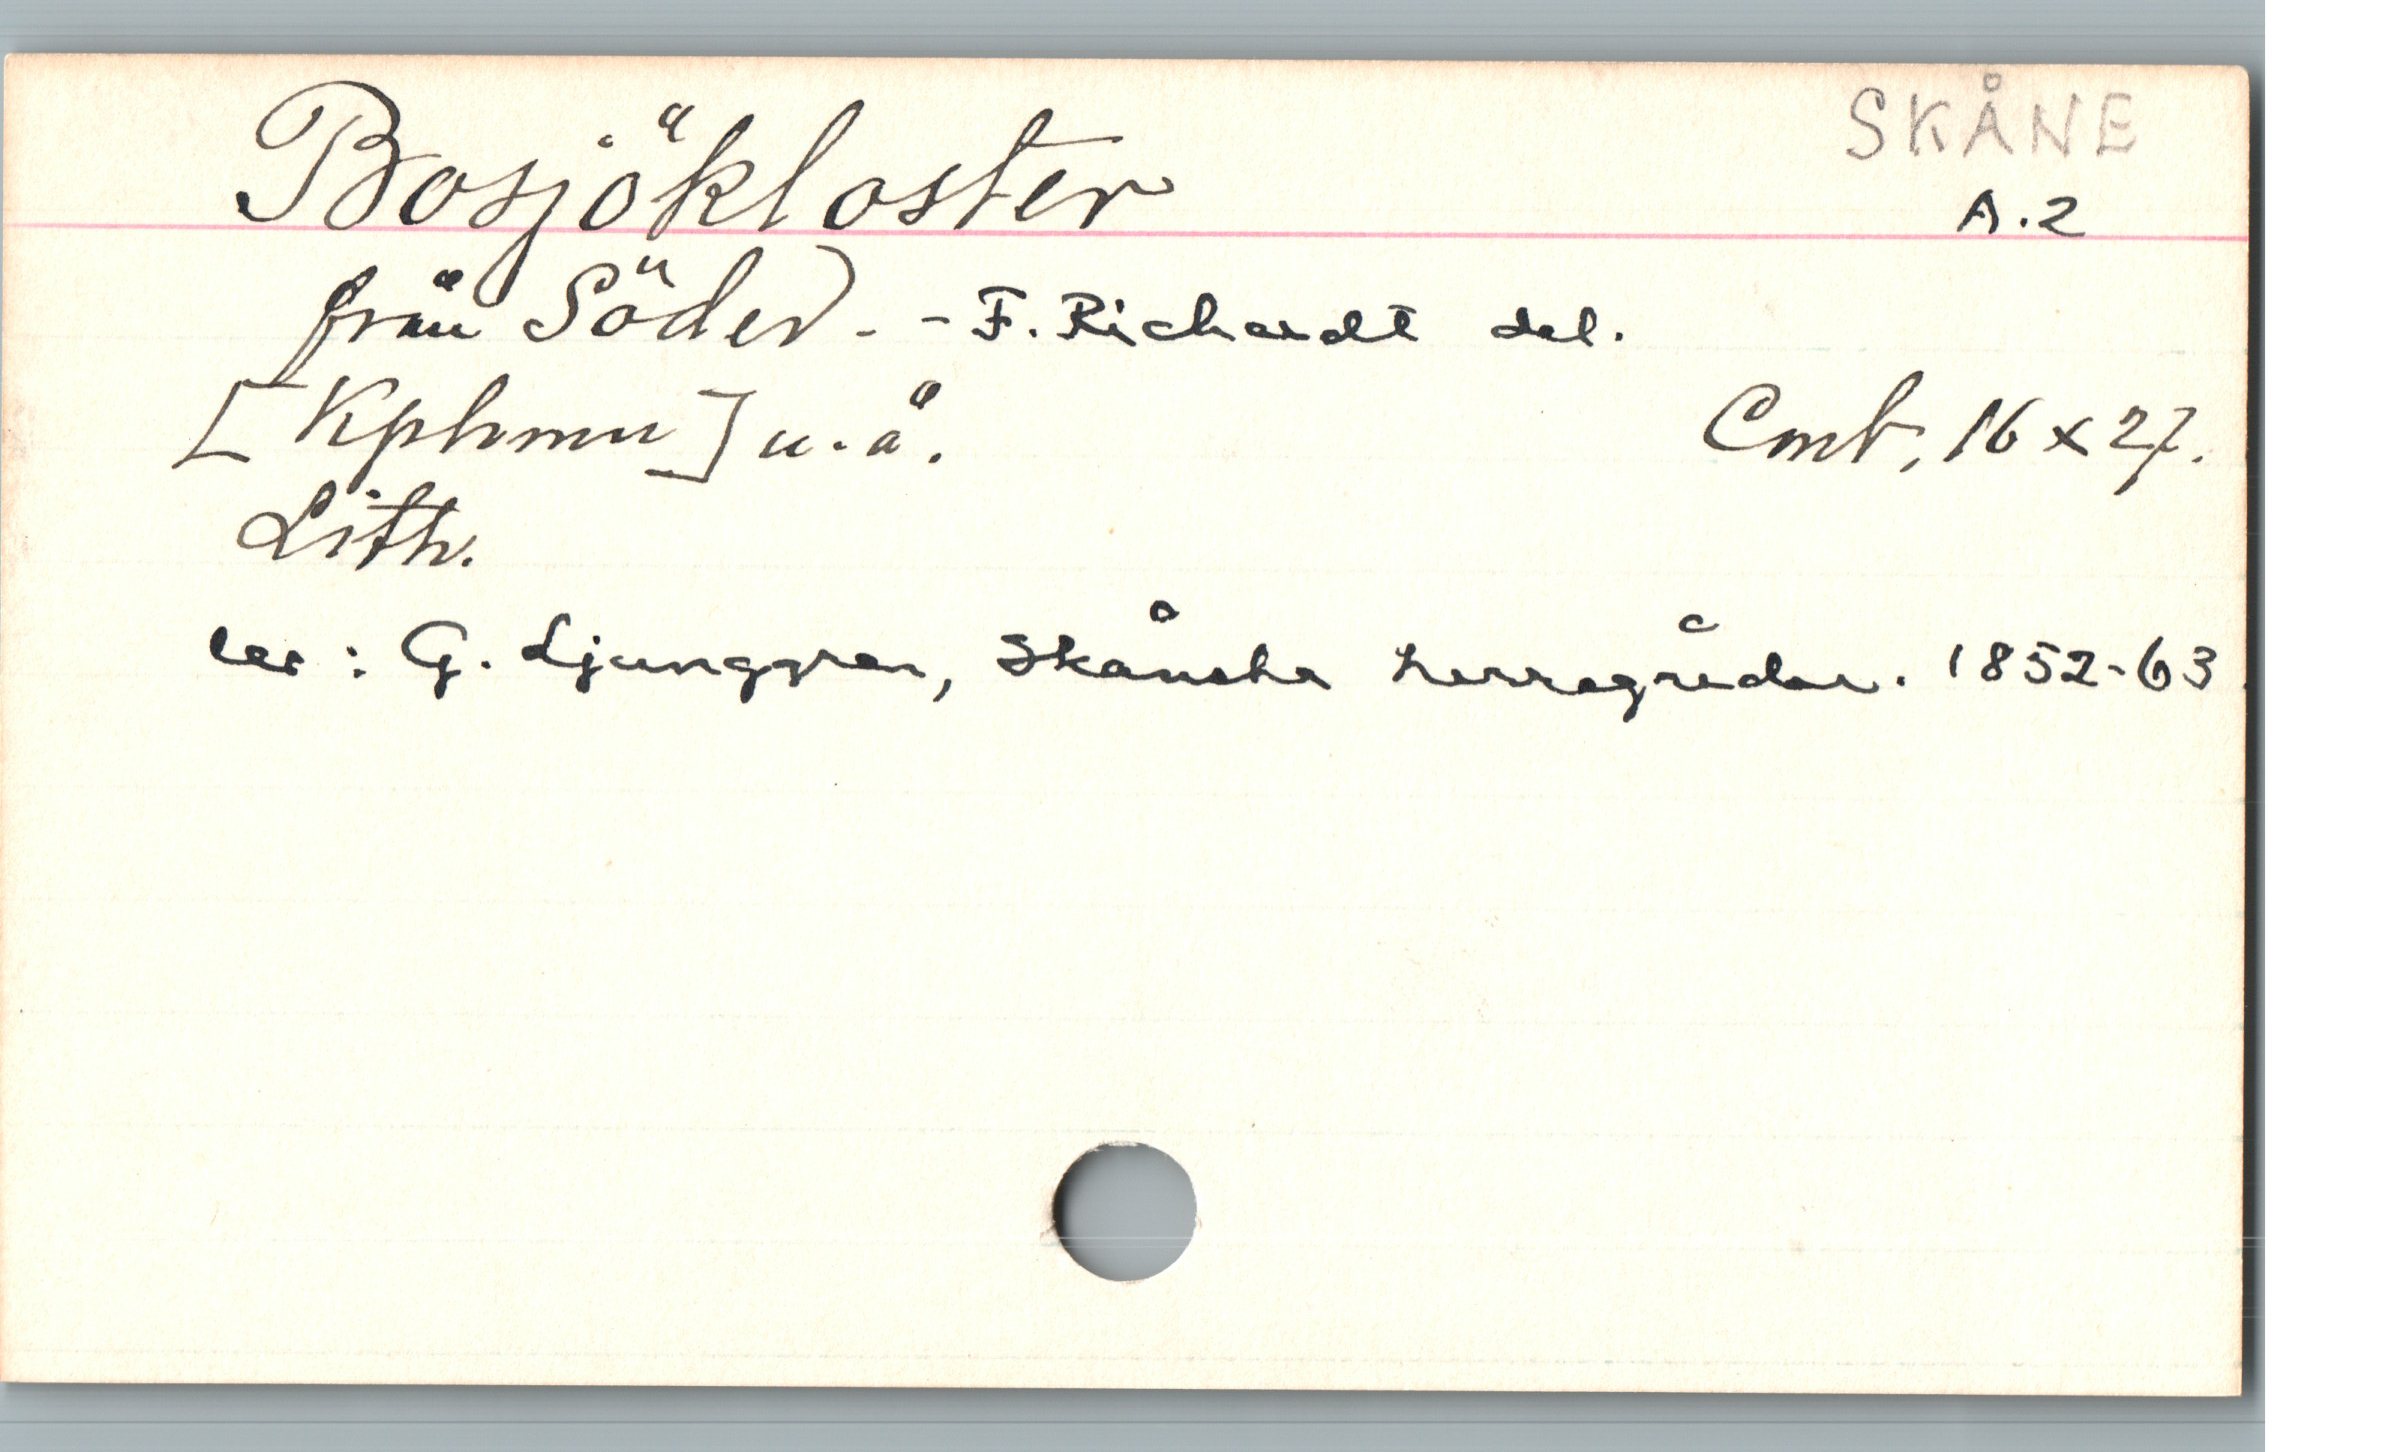 Bosjökloster
SKÅNE
A.2
från Söder). - F. Richardt del.
[Kphmn] u.å.
Cmb, 16 x 27.
Lith.
G. Ljunggren, Skånska herregårdar. 1852-63.